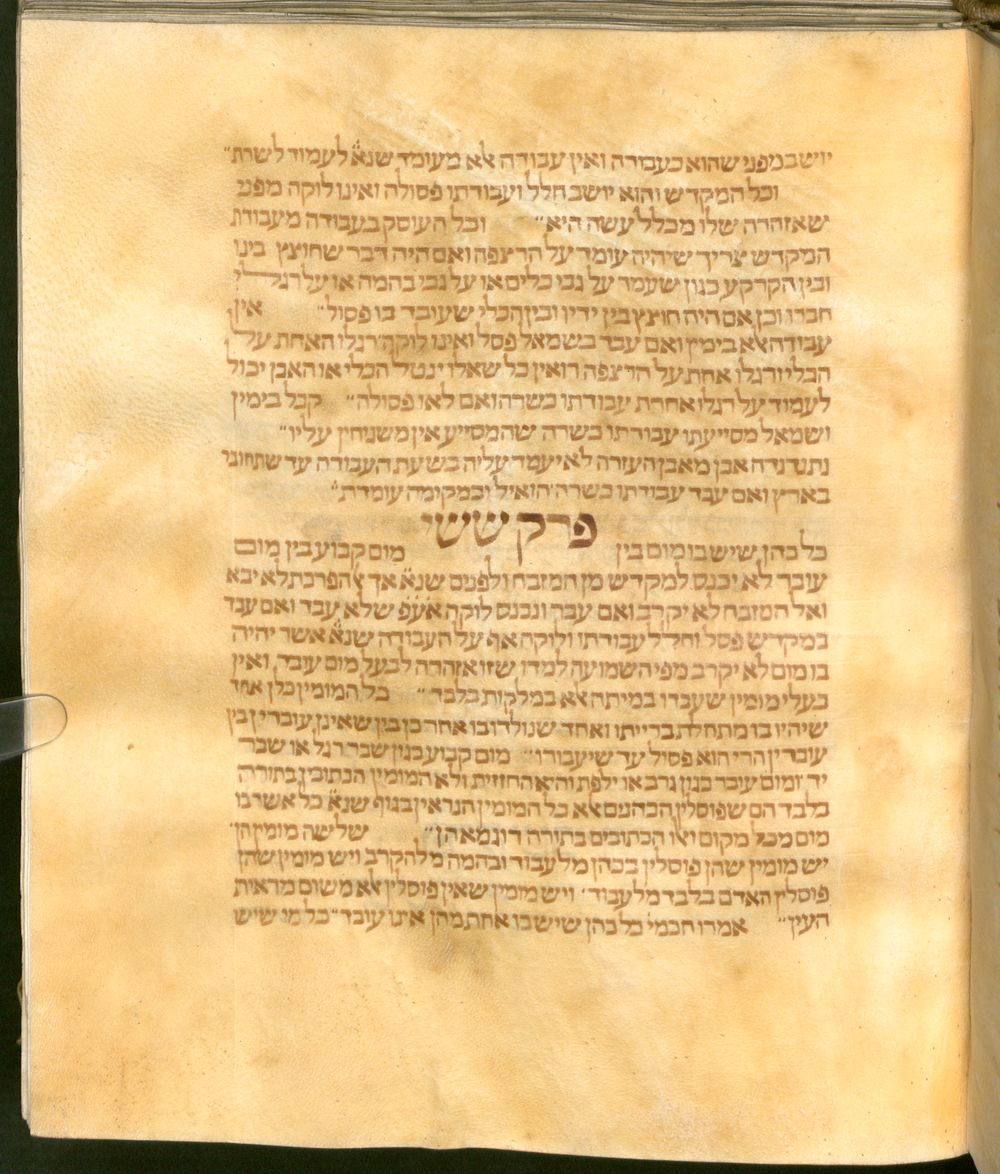 יושב מפני שהוא כעבודה ואין עבודה אלא מעומד שנא לעמוד לשרת״
וכל המקדש והוא יושב חלל ועבודתו פסולה ואינו לוקה מפני
שאזהרה שלו מכלל עשה היא״ וכל העוסק בעבודה מעבודת
המקדש צריך שיהיה עומד על הרצפה ואם היה דבר שחוצץ בינו
ובין הקרקע כגון שעמד על גבי כלים או על גבי בהמה או על רגלי
חברו וכן אם היה חוצץ בין ידיו ובין הכלי שעובד בו פסול״ אין
עבודה אלא בימין ואם עבד בשמאל פסל ואינו לוקה רגלו האחת על
הכלי ורגלו אחת על הרצפה רואין כל שאלו ינטל הכלי או האבן יכול
לעמוד על רגלו אחרת עבודתו כשרה ואם לאו פסולה״ קבל בימין
ושמאל מסייעתו עבודתו כשרה שהמסייע אין משגיחין עליו״
נתנדנדה אבן מאבן העזרה לא יעמד עליה בשעת העבודה עד שתחובר
בארץ ואם עבד עבודתו כשרה הואיל ובמקומה עומדת״
פרק ששי
כל כהן שיש בו מום בין מום קבוע בין מום
עובר לא יכנס למקדש מן המזבח ולפנים שנא אך אל הפרכת לא יבא
ואל המזבח לא יקרב ואם עבר ונכנס לוקה אעפ שלא עבד ואם עבד
במקדש פסל וחלל עבודתו ולוקה אף על העבודה שנא אשר יהיה
בו מום לא יקרב מפי השמועה למדו שזו אזהרה לבעל מום עובד ואין
בעלי מומין שעבדו במיתה אלא במלקות בלבד״ כל המומין כלן אחד
שיהיו בו מתחלת ברייתו ואחד שנולדו בו אחר כן בין שאינן עוברין בין
עוברין הרי הוא פסול עד שיעבורו״ מום קבוע כגון שבר רגל או שבר
יד ומום עובר כגון גרב או ילפת והיא החזזית ולא המומין הכתובין בתורה
בלבד הם שפוסלין הכהנים אלא כל המומין הנראין בגוף שנא כל אשר בו
מום מכל מקום ואלו הכתובים בתורה דוגמא הן״ שלשה מומין הן
יש מומין שהן פוסלין בכהן מלעבוד ובהמה מלהקרב ויש מומין שהן
פוסלין האדם בלבד מלעבוד׳ ויש מומין שאין פוסלין אלא משום מראית
העין״ אמרו חכמי כל כהן שיש בו אחת מהן אינו עובד״ כל מי שיש